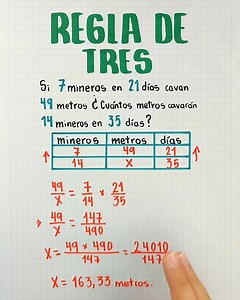 REGLA DE
TRES
Si 7 mineros en 21 días cavan
49 metros ¿Cuántos metros cavarán
14 mineros en 35 días?
mineros metros días
↑ 7 49 21 ↑
14 X 35
49/X = 7/14 × 21/35
⇒ 49/X = 147/490
X = 49 × 490/147 = 24010/147
X = 163,33 metros.